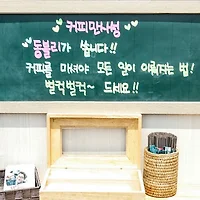 커피만사성
동불리가 쏩니다!!
커피를 마셔야 모든 일이 이뤄지는 법!
벌컥벌컥~ 드세요!!